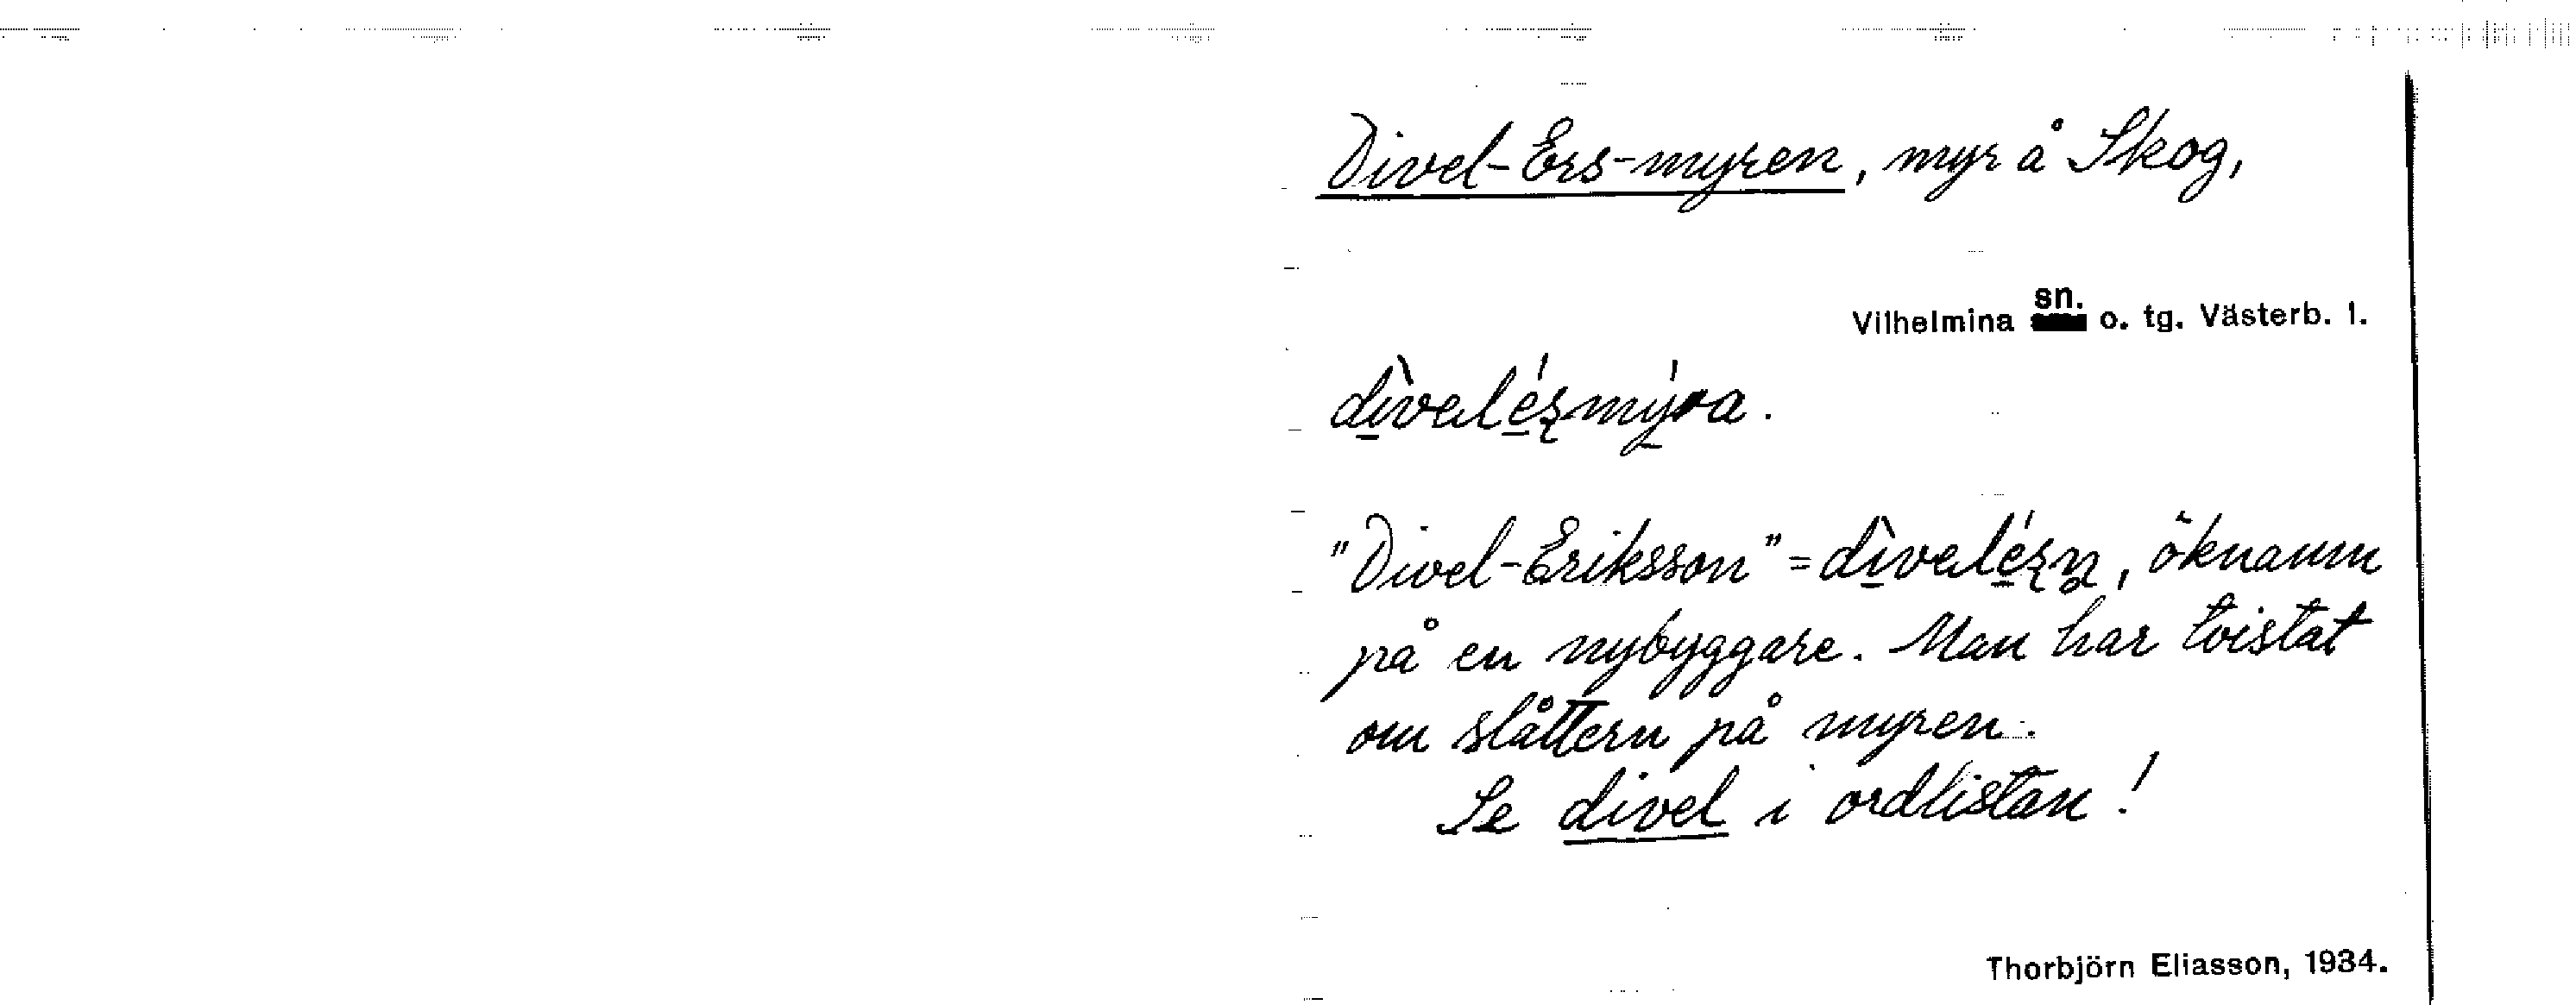 Divel-Ers-myren, myr å Skog,
Vilhelmina sn. o. tg. Västerb. l.
"Divel-Eriksson" = öknamn
på en nybyggare. Man har tvistat
om slåttern på myren.
Se divel i ordlistan!
Thorbjörn Eliasson, 1934.